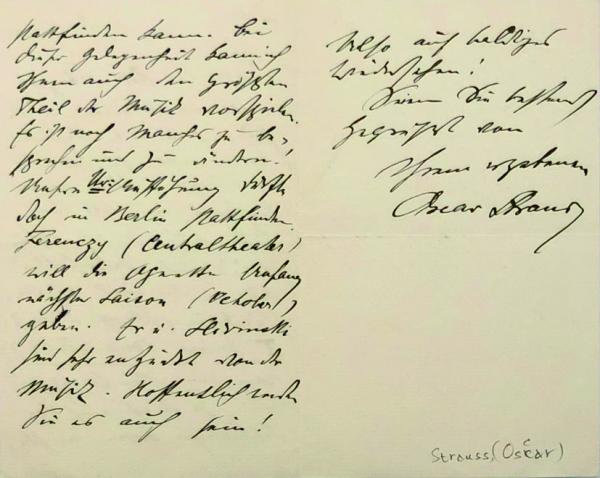 stattfinden kann. Bei
dieser Gelegenheit kann ich
Ihnen auch den größten
Theil der Musik vorspielen.
Es ist noch Manches zu be-
sprechen und zu ändern.
Unsere Uraufführung dürfte
doch in Berlin stattfinden.
Ferenczy (Centraltheater)
will die Operette Anfang
nächster Saison (October)
geben. Er u. Slivinski
sind sehr entzückt von der
Musik. Hoffentlich werden
Sie es auch sein!
Also auf baldiges
Wiedersehen!
Seien Sie bestens
gegrüßt von
Ihrem ergebenen
Oscar Straus
Strauss, (Oscar)